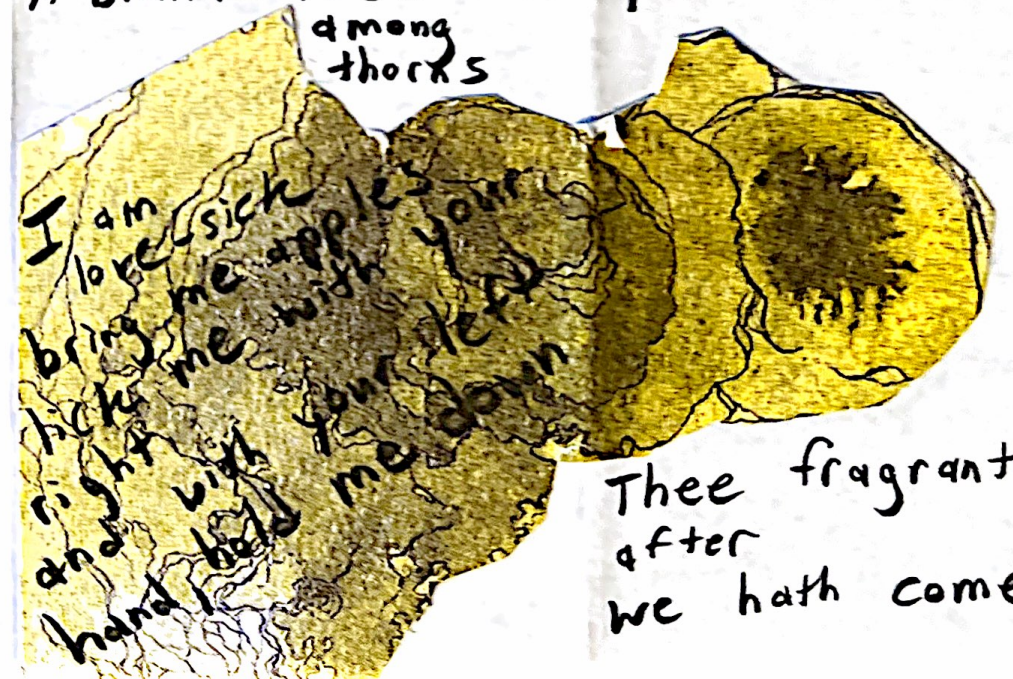 among
thorns
I am
love-sick
bring me apples
lick me with your
right
and with your left
hand, hold me down
Thee fragrant
after
we hath come